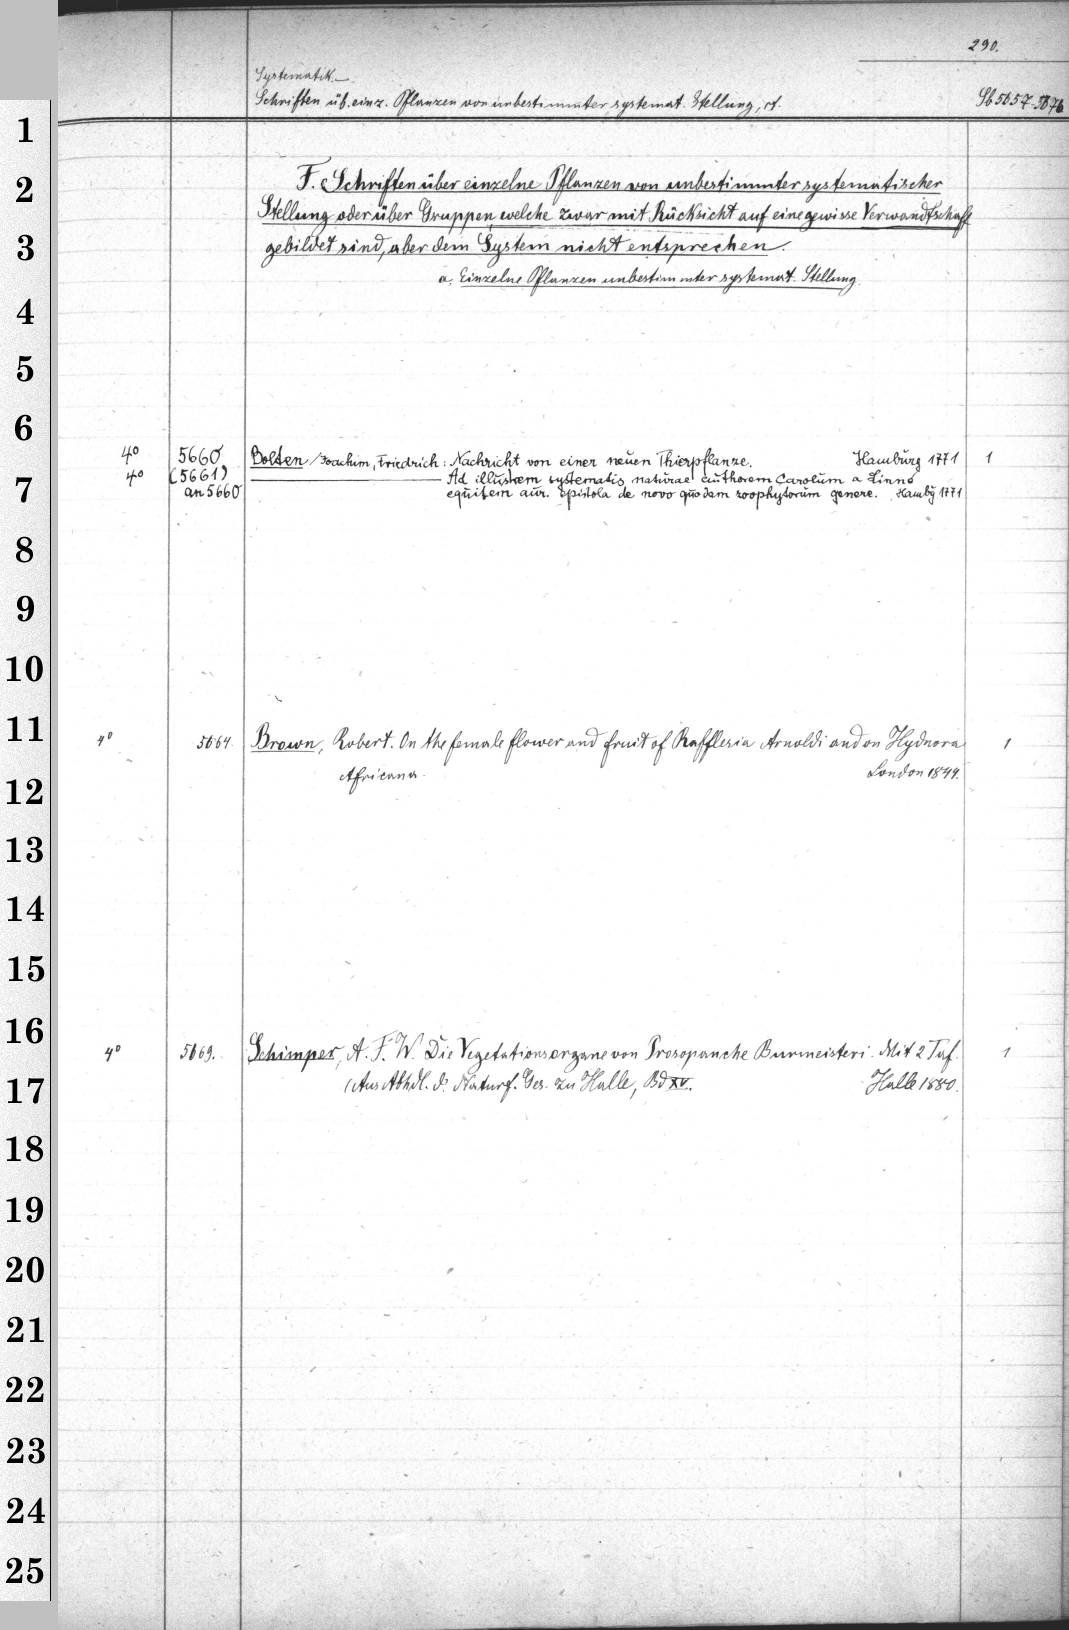 290.
Systematik.
Schriften üb. einz. Pflanzen von unbestimmter systemat. Stellung, ct. Sb 5657-5676
F. Schriften über einzelne Pflanzen von unbestimmter systematischer
Stellung oder über Gruppen, welche zwar mit Rücksicht auf eine gewisse Verwandtschaft
gebildet sind, aber dem System nicht entsprechen.
a. Einzelne Pflanzen unbestimmter systemat. Stellung.
4° 5660 Bolten, Joachim, Friedrich: Nachricht von einer neuen Thierpflanze. Hamburg 1771 1
4° (5661) Ad illustrem systematis naturae authorem Carolum a Linné
an 5660 equitem aur. epistola de novo quodam zoophytorum genere. Hambg 1771
4° 5664. Brown, Robert. On the female flower and fruit of Rafflesia Arnoldi and on Hydnora 1
Africana. London 1844.
4° 5669. Schimper, A. F. W. Die Vegetationsorgane von Prosopanche Burmeisteri. Mit 2 Taf. 1
(Aus Abhdl. d. Naturf. Ges. zu Halle, Bd XV. Halle 1880.
1
2
3
4
5
6
7
8
9
10
11
12
13
14
15
16
17
18
19
20
21
22
23
24
25